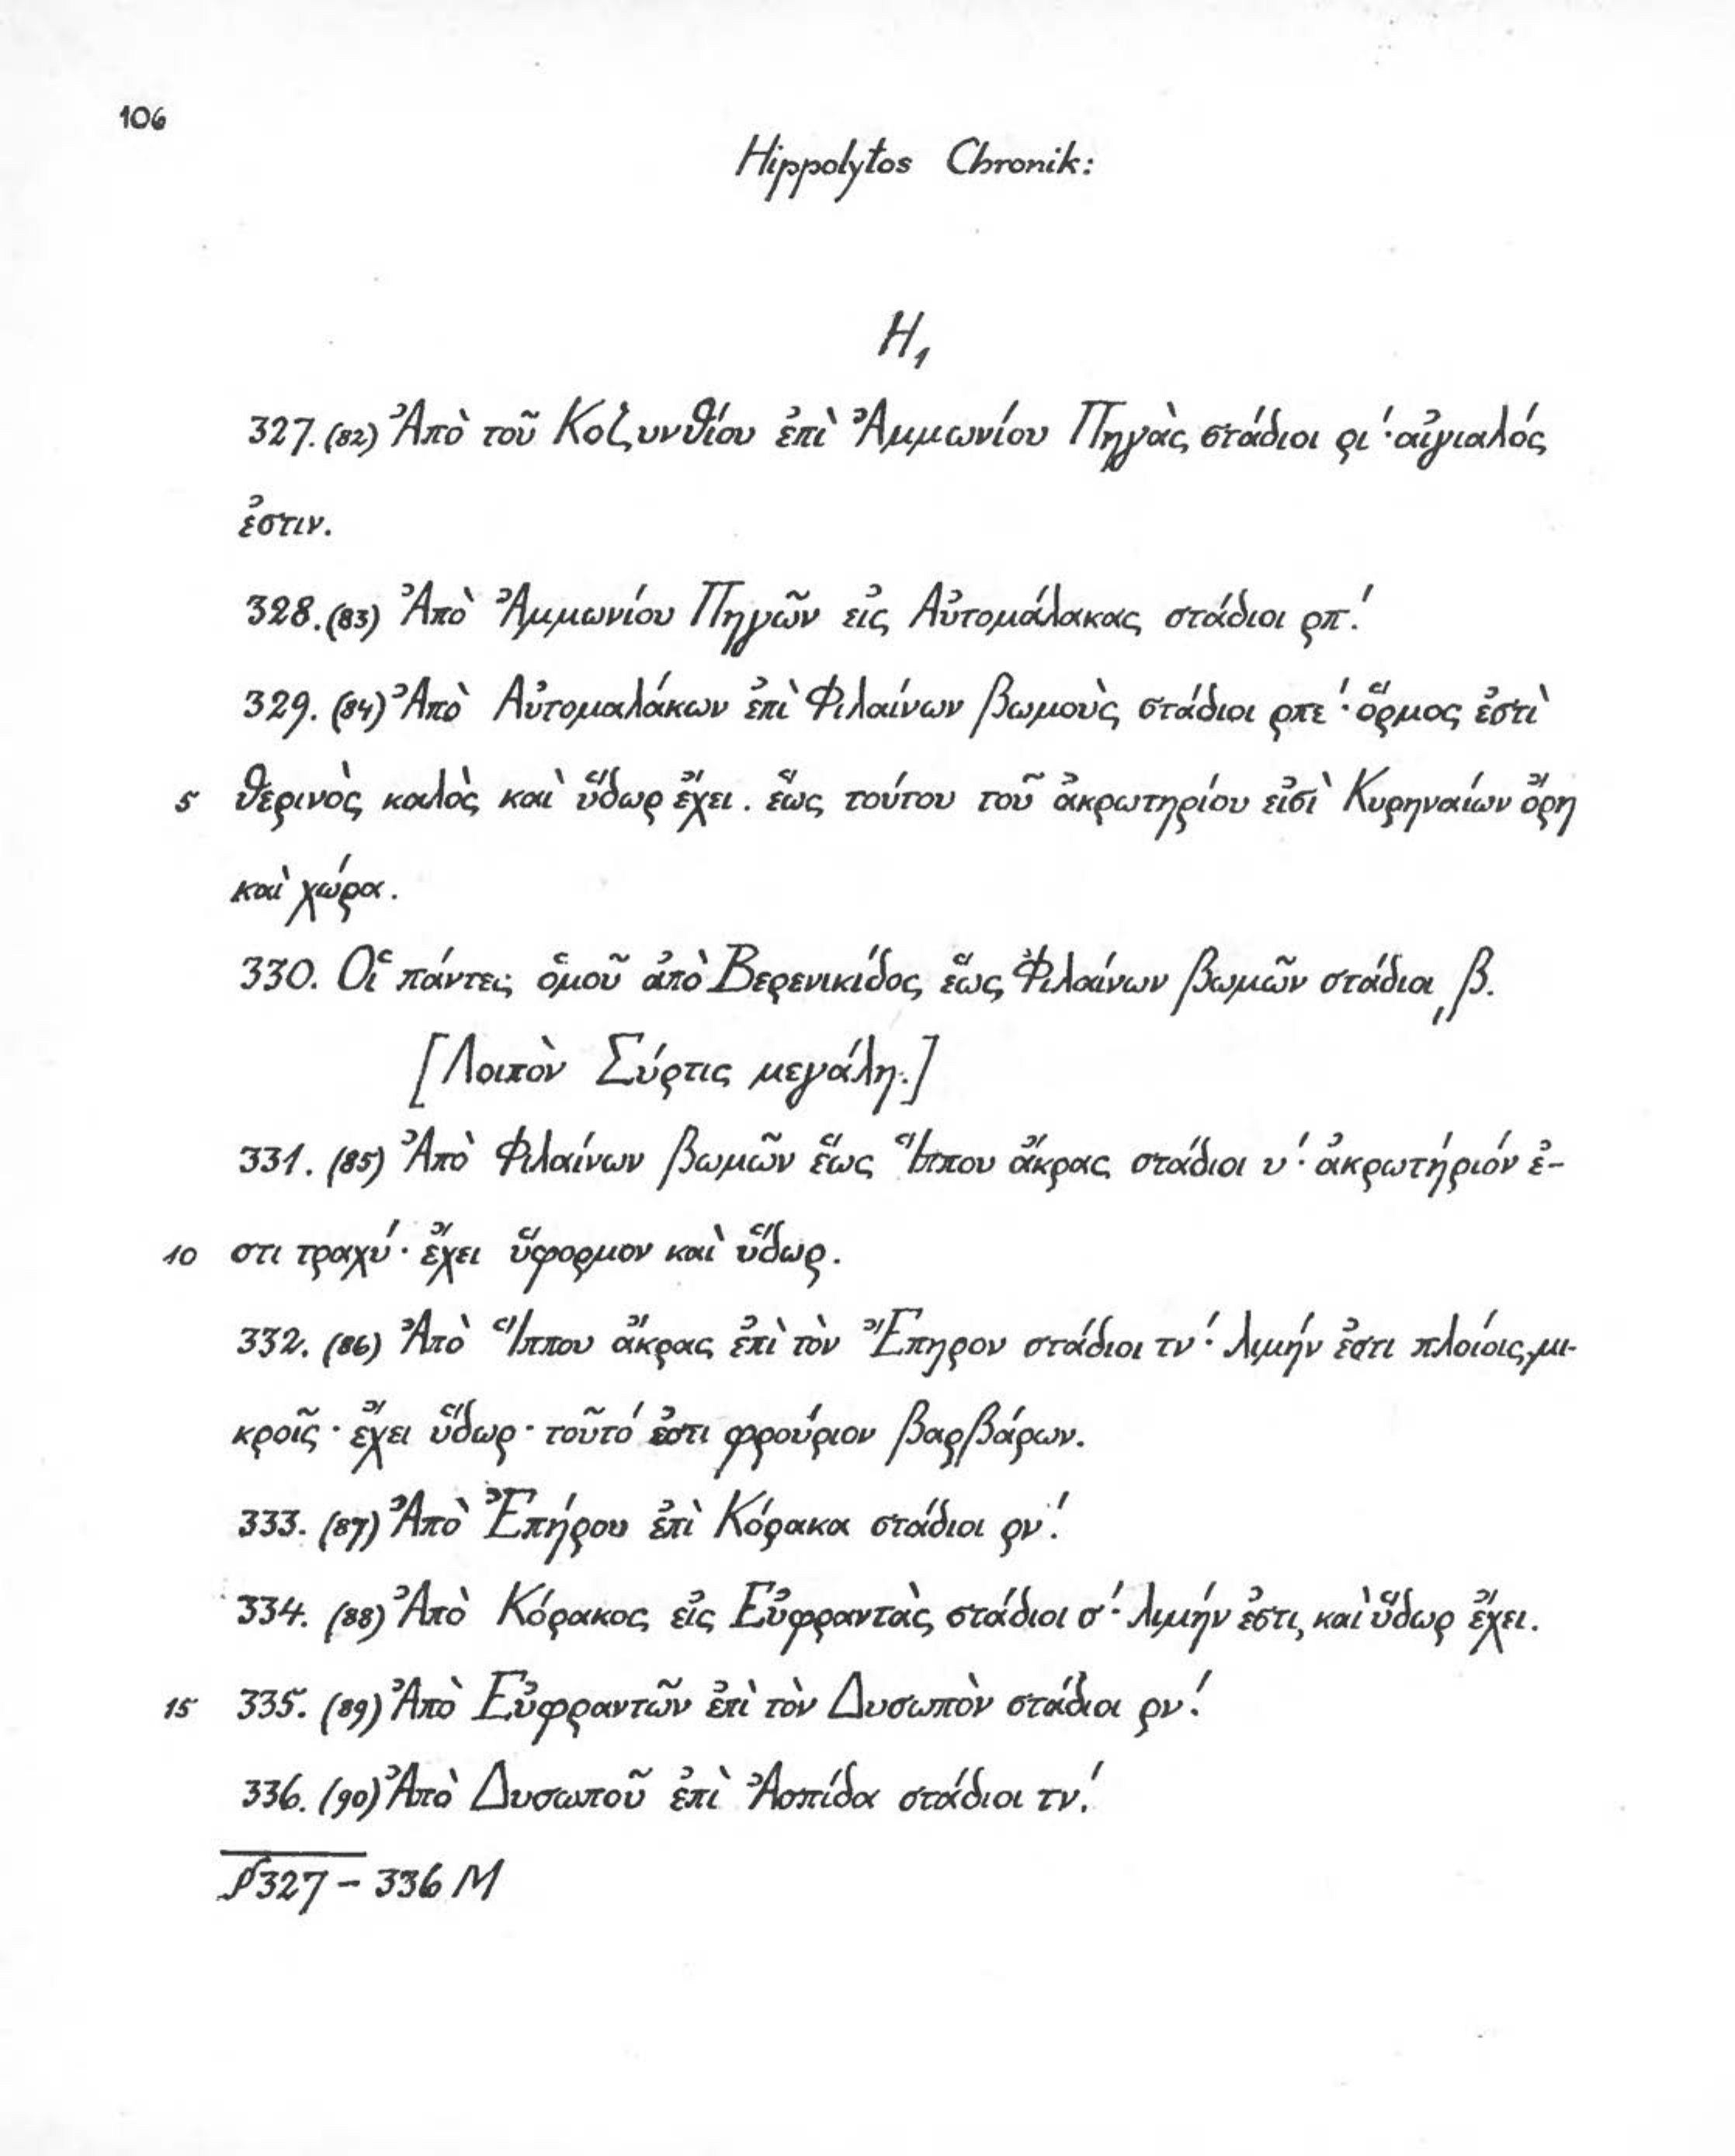 106
Hippolytos Chronik:
H₁
327. (82) Ἀπὸ τοῦ Κοζυνθίου ἐπὶ Ἀμμωνίου Πηγὰς στάδιοι ρι΄· αἰγιαλός
ἐστιν.
328. (83) Ἀπὸ Ἀμμωνίου Πηγῶν εἰς Αὐτομάλακας στάδιοι ρπ΄.
329. (84) Ἀπὸ Αὐτομαλάκων ἐπὶ Φιλαίνων βωμοὺς στάδιοι ρπε΄· ὅρμος ἐστὶ
5 θερινὸς καλὸς καὶ ὕδωρ ἔχει. ἕως τούτου τοῦ ἀκρωτηρίου εἰσὶ Κυρηναίων ὄρη
καὶ χώρα.
330. Οἱ πάντες ὁμοῦ ἀπὸ Βερενικίδος ἕως Φιλαίνων βωμῶν στάδιοι ͵β.
[Λοιπὸν Σύρτις μεγάλη.]
331. (85) Ἀπὸ Φιλαίνων βωμῶν ἕως Ἵππου ἄκρας στάδιοι υ΄· ἀκρωτήριόν ἐ-
10 στι τραχύ· ἔχει ὕφορμον καὶ ὕδωρ.
332. (86) Ἀπὸ Ἵππου ἄκρας ἐπὶ τὸν Ἔπηρον στάδιοι τν΄· λιμήν ἐστι πλοίοις μι-
κροῖς· ἔχει ὕδωρ· τοῦτό ἐστι φρούριον βαρβάρων.
333. (87) Ἀπὸ Ἐπήρου ἐπὶ Κόρακα στάδιοι ρν΄.
334. (88) Ἀπὸ Κόρακος εἰς Εὐφραντὰς στάδιοι σ΄· λιμήν ἐστι, καὶ ὕδωρ ἔχει.
15 335. (89) Ἀπὸ Εὐφραντῶν ἐπὶ τὸν Δυσωπὸν στάδιοι ρν΄.
336. (90) Ἀπὸ Δυσωποῦ ἐπὶ Ἀσπίδα στάδιοι τν΄.
327 – 336 M